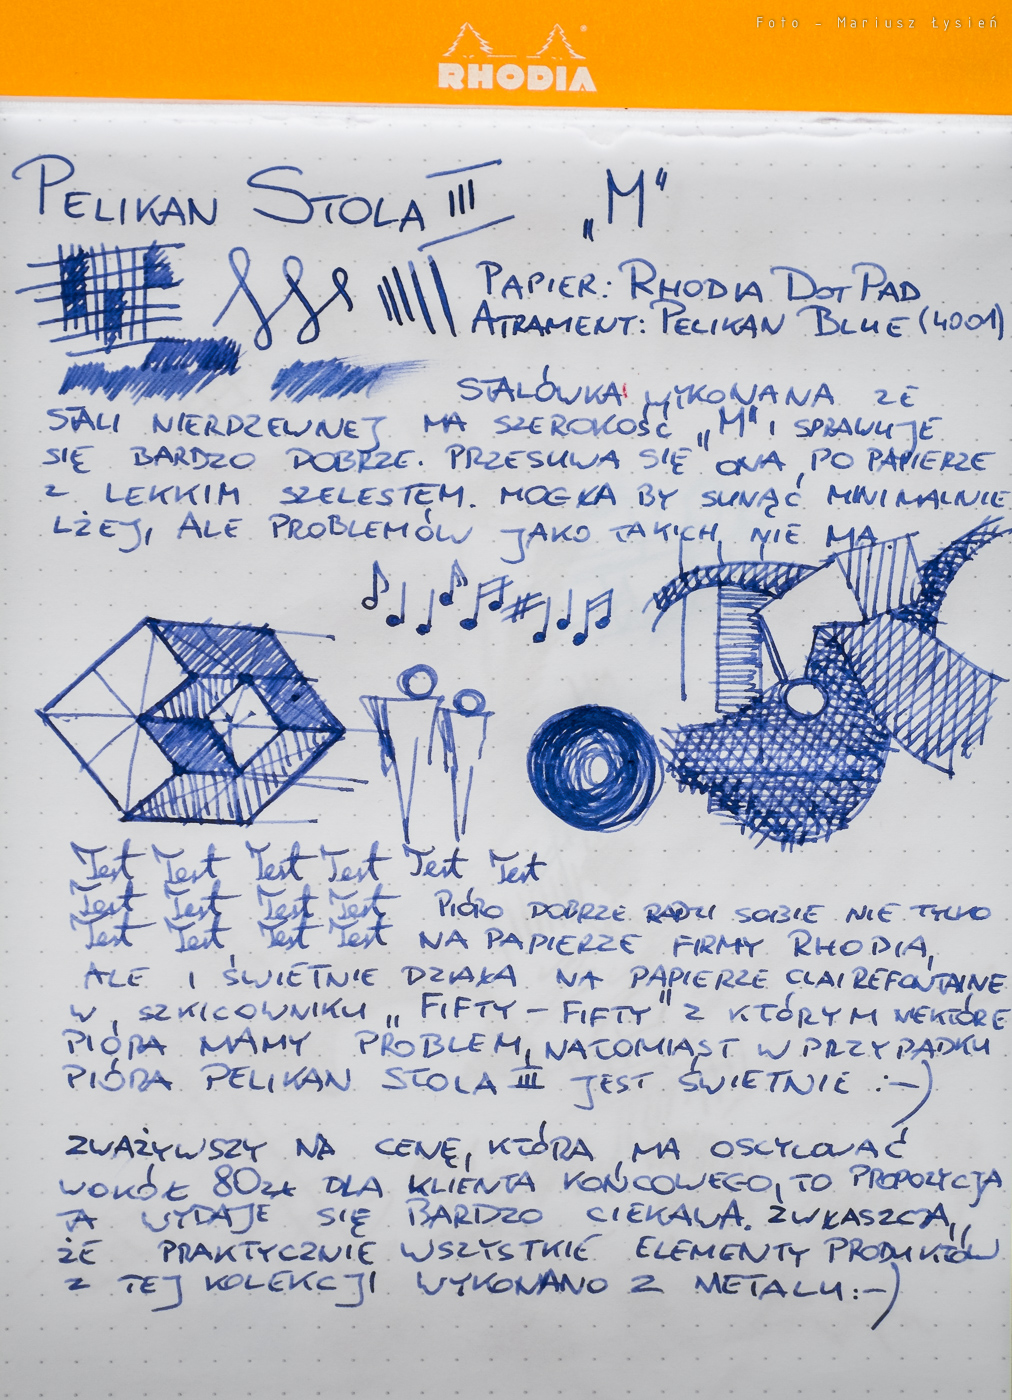 Foto - Mariusz Łysień
RHODIA
PELIKAN STOLA III „M"
PAPIER: RHODIA DOT PAD
ATRAMENT: PELIKAN BLUE (4001)
STALÓWKA WYKONANA ZE
STALI NIERDZEWNEJ MA SZEROKOŚĆ „M" I SPRAWUJE
SIĘ BARDZO DOBRZE. PRZESUWA SIĘ ONA PO PAPIERZE
Z LEKKIM SZELESTEM. MOGŁA BY SUNĄĆ MINIMALNIE
LŻEJ, ALE PROBLEMÓW JAKO TAKICH NIE MA.
Test Test Test Test Test Test
Test Test Test Test PIÓRO DOBRZE RADZI SOBIE NIE TYLKO
Test Test Test Test NA PAPIERZE FIRMY RHODIA,
ALE I ŚWIETNIE DZIAŁA NA PAPIERZE CLAIREFONTAINE
W SZKICOWNIKU „FIFTY-FIFTY" Z KTÓRYM NIEKTÓRE
PIÓRA MAMY PROBLEM, NATOMIAST W PRZYPADKU
PIÓRA PELIKAN STOLA III JEST ŚWIETNIE :-)
ZWAŻYWSZY NA CENĘ, KTÓRA MA OSCYLOWAĆ
WOKÓŁ 80ZŁ DLA KLIENTA KOŃCOWEGO, TO PROPOZYCJA
TA WYDAJE SIĘ BARDZO CIEKAWA. ZWŁASZCZA,
ŻE PRAKTYCZNIE WSZYSTKIE ELEMENTY PRODUKTÓW
Z TEJ KOLEKCJI WYKONANO Z METALU :-)